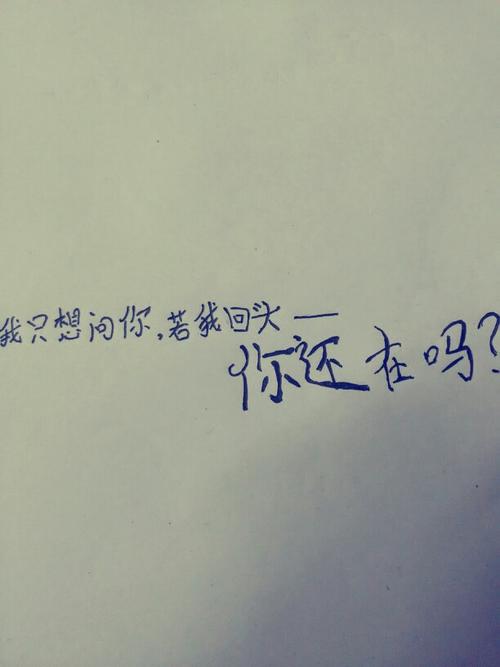 我只想问你,若我回头——
你还在吗?